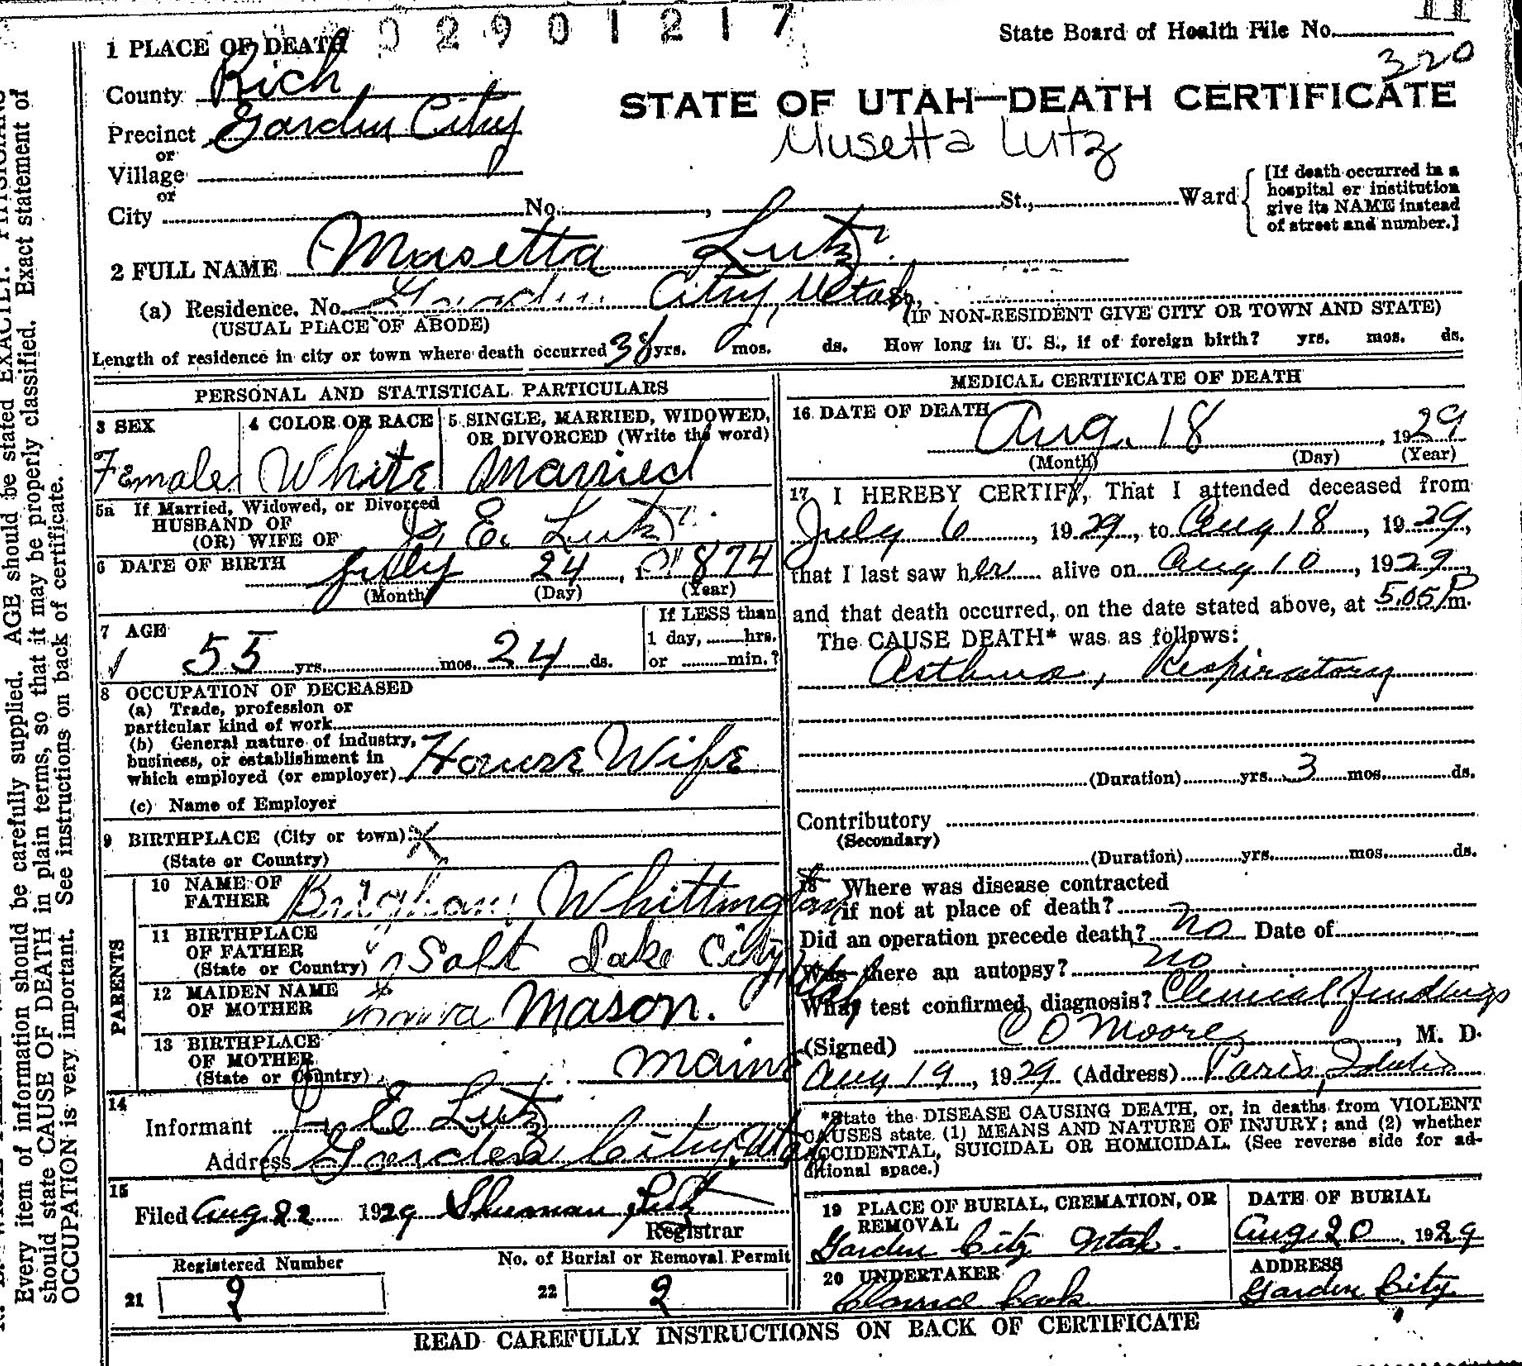 02901217
State Board of Health File No. 11
320
1 PLACE OF DEATH
County Rich
Precinct Garden City
or
Village
or
City No. , St., Ward
[If death occurred in a
hospital or institution
give its NAME instead
of street and number.]
STATE OF UTAH—DEATH CERTIFICATE
Musetta Lutz
2 FULL NAME Musetta Lutz
(a) Residence. No. Garden City, Utah,
(USUAL PLACE OF ABODE) (IF NON-RESIDENT GIVE CITY OR TOWN AND STATE)
Length of residence in city or town where death occurred 38 yrs. mos. ds. How long in U. S., if of foreign birth? yrs. mos. ds.
PERSONAL AND STATISTICAL PARTICULARS
3 SEX
Female
4 COLOR OR RACE
White
5 SINGLE, MARRIED, WIDOWED,
OR DIVORCED (Write the word)
Married
5a If Married, Widowed, or Divorced
HUSBAND OF
(OR) WIFE OF E. Lutz
6 DATE OF BIRTH July 24, 1874
(Month) (Day) (Year)
7 AGE
55 yrs. mos. 24 ds.
If LESS than
1 day, hrs.
or min.?
8 OCCUPATION OF DECEASED
(a) Trade, profession or
particular kind of work
(b) General nature of industry,
business, or establishment in
which employed (or employer) House Wife
(c) Name of Employer
9 BIRTHPLACE (City or town)
(State or Country)
PARENTS
10 NAME OF
FATHER Brigham Whittington
11 BIRTHPLACE
OF FATHER
(State or Country) Salt Lake City, Utah
12 MAIDEN NAME
OF MOTHER Mason.
13 BIRTHPLACE
OF MOTHER
(State or Country) Maine
14
Informant E Lutz
Address Garden City, Utah
15
Filed Aug 22 1929 Sherman Lutz
Registrar
Registered Number
21 9
No. of Burial or Removal Permit
22 9
MEDICAL CERTIFICATE OF DEATH
16 DATE OF DEATH Aug. 18, 1929
(Month) (Day) (Year)
17 I HEREBY CERTIFY, That I attended deceased from
July 6, 1929, to Aug 18, 1929,
that I last saw her alive on Aug 10, 1929,
and that death occurred, on the date stated above, at 5.05 P m.
The CAUSE DEATH* was as follows:
Asthma, Respiratory
(Duration) yrs. 3 mos. ds.
Contributory
(Secondary)
(Duration) yrs. mos. ds.
18 Where was disease contracted
if not at place of death?
Did an operation precede death? no Date of
Was there an autopsy? no
What test confirmed diagnosis? Clinical findings
(Signed) C O Moore, M. D.
Aug 19, 1929 (Address) Paris, Idaho
*State the DISEASE CAUSING DEATH, or, in deaths from VIOLENT
CAUSES state (1) MEANS AND NATURE OF INJURY; and (2) whether
ACCIDENTAL, SUICIDAL OR HOMICIDAL. (See reverse side for ad-
ditional space.)
19 PLACE OF BURIAL, CREMATION, OR
REMOVAL
Garden City Utah.
DATE OF BURIAL
Aug 20, 1929
20 UNDERTAKER
ADDRESS
Garden City
READ CAREFULLY INSTRUCTIONS ON BACK OF CERTIFICATE
Every item of information should be carefully supplied. AGE should be stated EXACTLY. PHYSICIANS
should state CAUSE OF DEATH in plain terms, so that it may be properly classified. Exact statement of
OCCUPATION is very important. See instructions on back of certificate.